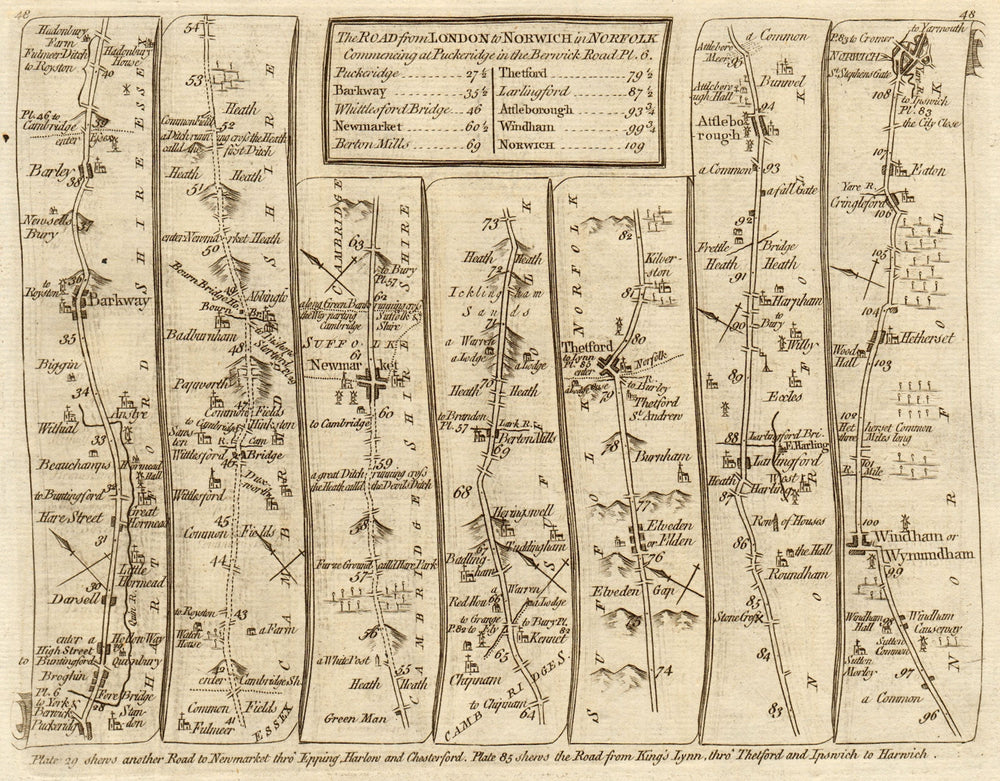 48
48
The ROAD from LONDON to NORWICH in NORFOLK
Commencing at Puckeridge in the Berwick Road Pl. 6.
Puckeridge 27½
Barkway 35½
Whittlesford Bridge 46
Newmarket 60½
Berton Mills 69
Thetford 79½
Larlingford 87½
Attleborough 93¾
Windham 99¾
NORWICH 109
Hadonbury
Farm
Fulmer Ditch
to Royston
Hadonbury
House
40
Pl. 46 to
Cambridge
enter
39
Essex
Barley
38
Newsells
Bury
37
to
Royston
36
Barkway
35
Biggin
34
Anstye
Withal
33
Beauchamps
Hormead
Hall
32
to Buntingford
Great
Hormead
Hare Street
31
Little
Hormead
30
Darsell
Quin R.
enter a
Hollow Way
High Street
to
Buntingford
Quenbury
Broghin
Pl. 6
to York &
Berwick
Fore Bridge
28
Standon
Puckeridge
HARTFORDSHIRE
ESSEX
54
53
Heath
Common Field
52
a Ditch running cross the Heath
call'd
first Ditch
Heath
Heath
51
enter Newmarket Heath
50
Bourn Bridge
49
Abbington
Bourn
Badburnham
48
Papworth
47
Common Fields
to Cambridge
Hinkston
Sawsten
R. Cam
Wittlesford
Bridge
46
Duxworth
Wittlesford
45
Common Fields
44
to Royston
43
Water
House
a Farm
42
enter Cambridge Sh.
Common Fields
41
Fulmeer
ESSEX
CAMBRIDGESHIRE
CAMBRIDGE
SHIRE
63
to Bury
Pl. 57
62
along Green Bank running cross
the Way parting Suffolk &
Cambridge Shire
SUFFOLK
61
Newmarket
60
to Cambridge
59
a great Ditch running cross
the Heath calld the Devils Ditch
58
Furze Ground calld Hare Park
57
56
a White Post
55
Heath
Heath
Green Man
CAMBRIDGESHIRE
73
Heath
Heath
72
Icklingham
Sands
71
a Warren
a Lodge
a Lodge
70
Heath
Heath
to Brandon
Pl. 57
Lark R.
Berton Mills
69
68
Heringswell
Tuddingham
67
Badlingham
a Warren
and Lodge
Red House
66
to Grange
Pl. 82 to Ely
to Bury Pl. 82
Kennet
65
Chipnam
to Chipnam
64
CAMBRIDGE S.
SUFFOLK
82
Kilverston
81
80
Thetford
to Lynn
Pl. 85
enter
Norfolk
79
to Bury
Thetford
St. Andrew
78
Burnham
77
Elveden
or Elden
76
Elveden
Gap
75
74
NORFOLK
SUFFOLK
a Common
Attlebor
Meer
95
Bunvel
Attleborough Hall
94
Attleborough
93
a Common
a fall Gate
92
Frettle
Bridge
Heath
Heath
91
Harpham
to
Bury
90
Wilby
89
Eccles
88
Larlingford Bri.
E. Harling
Larlingford
Heath
West
Harling
87
Row of Houses
86
the Hall
Roundham
85
Stone Cross
84
83
NORFOLK
Pl. 83 to Cromer
to Yarmouth
NORWICH
St. Stephens Gate
Yare R.
108
to Ipswich
Pl. 83
the City Close
107
Eaton
Yare R.
Cringleford
106
105
104
Hetherset
Wood
Hall
103
102
Hetherset Common
three Miles long
R. Tof
Mile
100
Windham or
Wymundham
99
Windham
Hall
98
Windham
Causeway
Sutton
Common
Sutton
Morley
97
a Common
96
NORFOLK
Plate 29 shews another Road to Newmarket thro' Epping, Harlow and Chesterford. Plate 85 shews the Road from King's Lynn, thro' Thetford and Ipswich to Harwich.